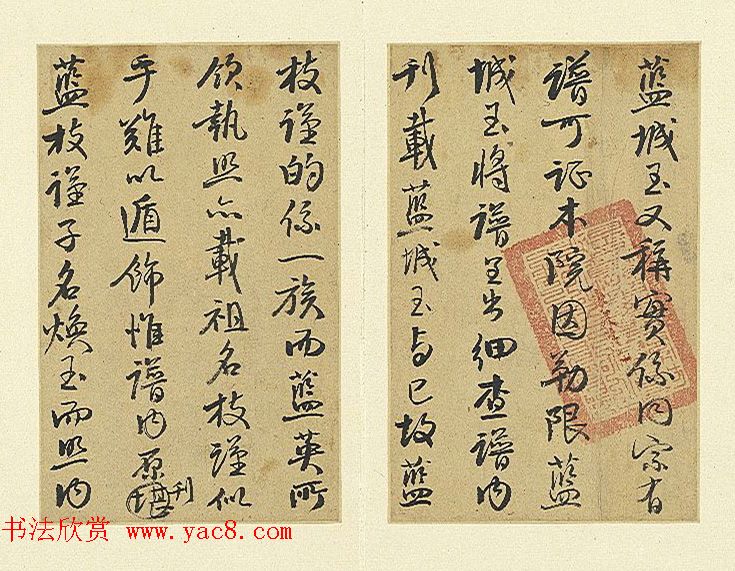 藍城玉又稱實係同宗有
譜可証本院因勒限藍
城玉將譜呈出細查譜内
刊載藍城玉與已故藍
枝謹的係一族而藍英所
領執照亦載祖名枝謹似
乎難以遁飾惟譜内原刊
藍枝謹子名煥玉而照内
书法欣赏 www.yac8.com